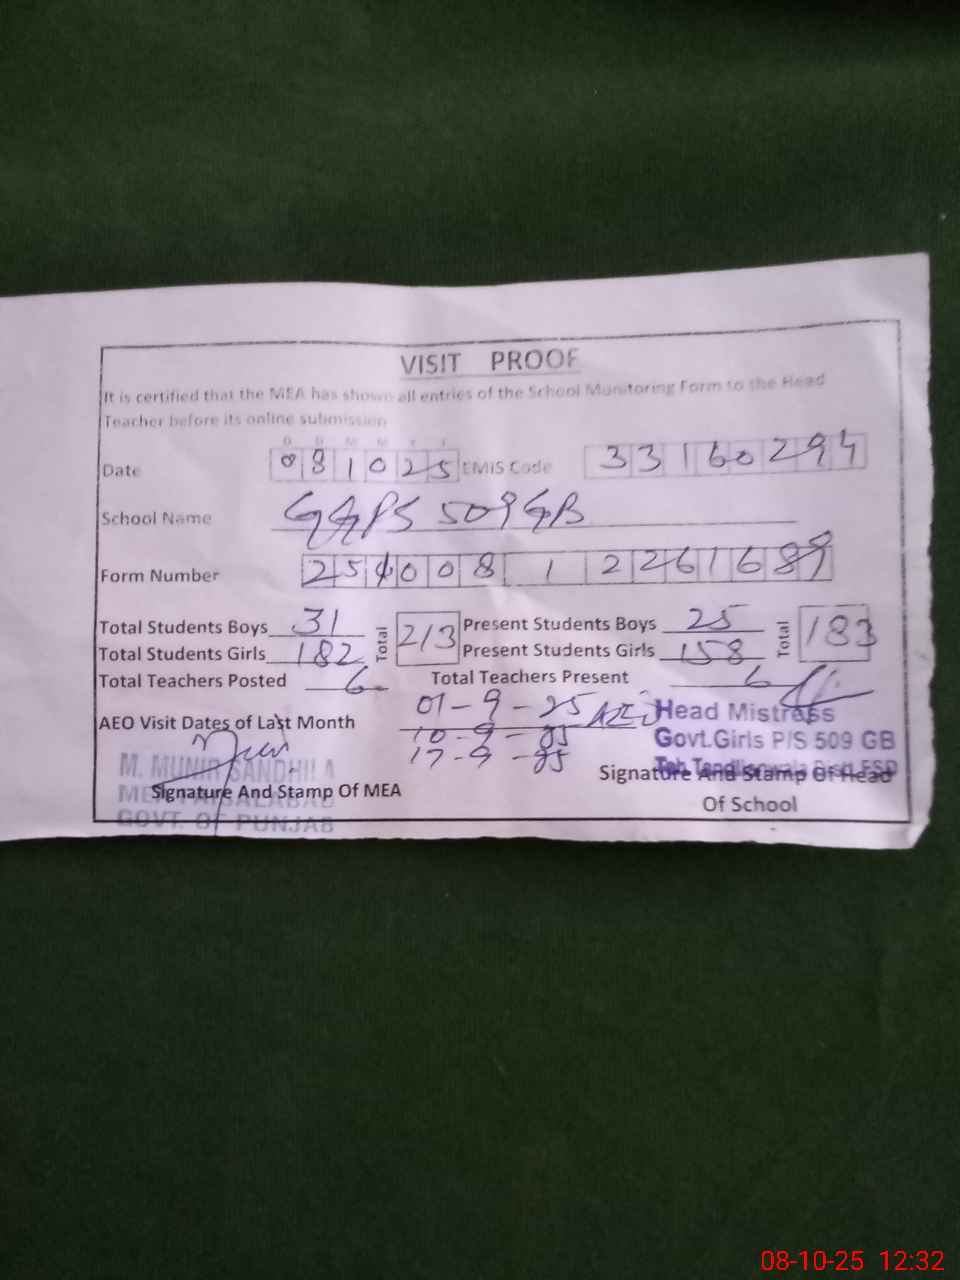 VISIT PROOF
It is certified that the MEA has shown all entries of the School Monitoring Form to the Head
Teacher before its online submission
D D M M Y Y
Date 081025 EMIS Code 33160294
School Name GGPS 509 GB
Form Number 254008 1 2261689
Total Students Boys 31 Total 213 Present Students Boys 25 Total 183
Total Students Girls 182 Present Students Girls 158
Total Teachers Posted 6 Total Teachers Present 6
AEO Visit Dates of Last Month 01-9-25 AEO
10-9-25
17-9-25
Head Mistress
Govt.Girls P/S 509 GB
Teh Tandlianwala Distt FSD
M. MUNIR SANDHILA
MEA FAISALABAD
GOVT. OF PUNJAB
Signature And Stamp Of MEA
Signature And Stamp Of Head
Of School
08-10-25 12:32